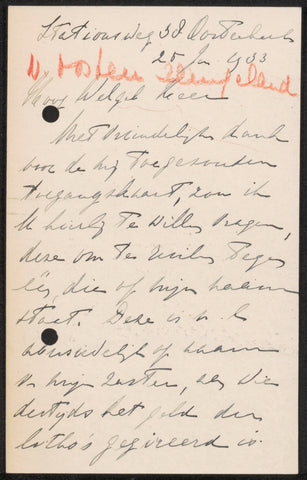 Stationsweg 38 Oosterbeek
25 Jan 1933
v. Rossem
Hoog Welgeb Heer
Met vriendelijk dank
voor de mij toegezonden
toegangskaart, zou ik
U heusch te willen vragen,
deze om te ruilen tegen
één, die op mijn naam
staat. Deze is n.l.
abusievelijk op naam
v. mijn zuster, als die
destijds het geld der
litho's gegireerd is.